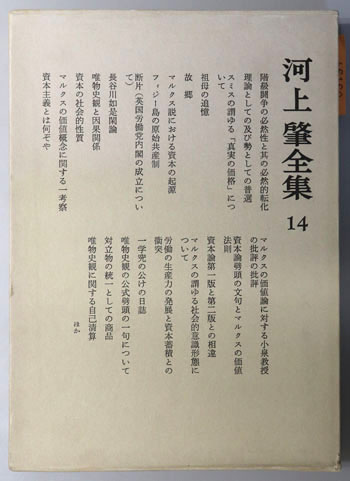 河上肇全集
14
階級闘争の必然性と其の必然的転化
理論としての及び勢としての普選
スミスの謂ゆる「真実の価格」につ
いて
祖母の追憶
故郷
マルクス説における資本の起源
フィジー島の原始共産制
断片(英国労働党内閣の成立につい
て)
長谷川如是閑論
唯物史観と因果関係
資本の社会的性質
マルクスの価値概念に関する一考察
資本主義とは何ぞや
マルクスの価値論に対する小泉教授
の批評の批評
資本論劈頭の文句とマルクスの価値
法則
資本論第一版と第二版との相違
マルクスの謂ゆる社会的意識形態に
ついて
労働の生産力の発展と資本蓄積との
衝突
一学究の公けの日誌
唯物史観の公式劈頭の一句について
対立物の統一としての商品
唯物史観に関する自己清算
ほか